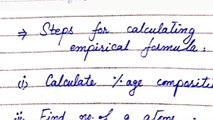 → Steps for calculating
empirical formula:
(i) Calculate %age compositi
Find no. of g atoms